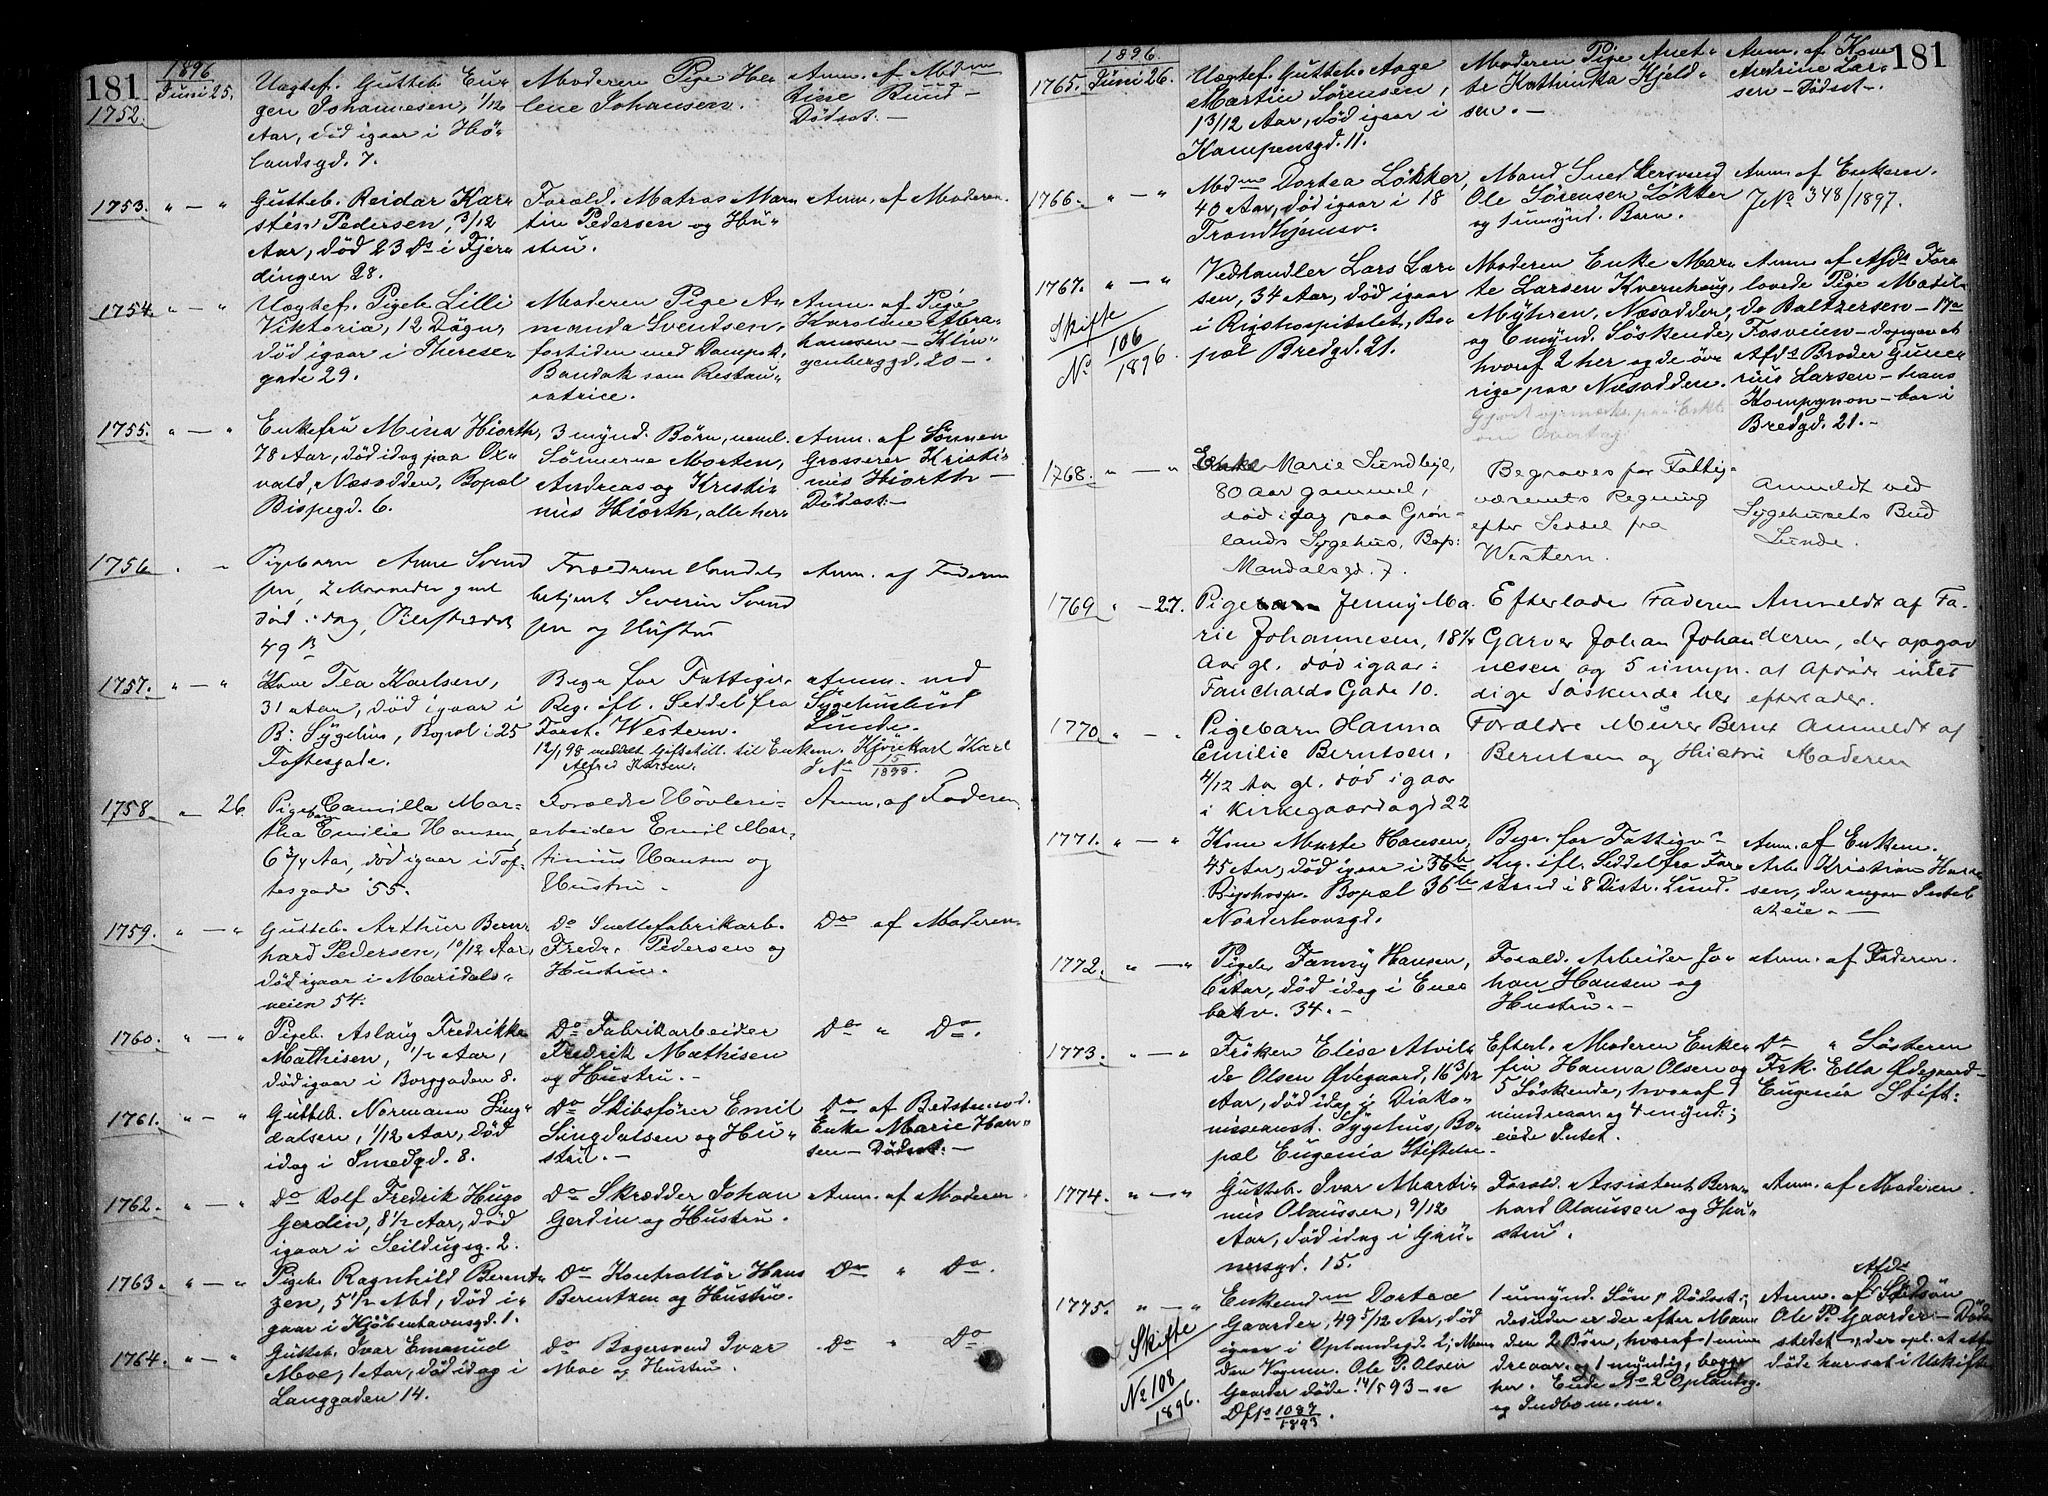 181
1896
Juni 25.
1752.
Uægtef. Gutteb. Eu-
gen Johannesen, 1/12
Aar, død igaar i Hø-
landsgd. 7.
Moderen Pige He-
lene Johansen.
Anm. af Mdm
Rund -
Dødsst. -
1753. " — "
Gutteb. Reidar Kar-
sten Pedersen, 3/12
Aar, død 23 Ds i Fjer-
dingen 28.
Foræld. Matros Mar-
tin Pedersen og Hu-
stru.
Anm. af Moderen.
1754. " — "
Uægtef. Pigeb. Lilli
Viktoria, 12 Døgn,
død igaar i Therese-
gade 29.
Moderen Pige A-
manda Svendsen,
fortiden med Dampsk.
Bandak som Restau-
ratrice.
Anm. af Pige
Karoline Abra-
hamsen - Klin-
genberggd. 20 -.
1755. " — "
Enkefru Mina Hiorth,
78 Aar, død idag paa Ox-
vald, Næsodden, Bopæl
Bispegd. 6.
3 mynd. Børn, neml.
Sønnerne Morten,
Andreas og Kristi-
nius Hiorth, alle her.
Anm. af Sønnen
Grosserer Kristi-
nius Hiorth -
Dødsst: -
1756
Pigebarn Anne Svend
sen, 2 Maaneder gml
død idag,
49 B
Forældrene Handels
betjent Severin Svend
sen og Hustru
Anm. af Faderen
1757. " — "
Kone Tea Karlsen,
31 Aar, død igaar i
B: Sygehus, Bopæl i 25
Toftesgade.
Begr. for Fattigv.
Reg. ifl. Seddel fra
Forst. Western.
12/1 98 meddelt Giftetill. til Enkem. Kjørekarl Karl
Alfred Karlsen. J. No 15/1898.
Anm. ved
Sygehusbud
Lunde.
1758. " 26.
Pigebarn Camilla Mar-
tha Emilie Hansen,
6 3/4 Aar, død igaar i Tof-
tesgade 55.
Forældre Høvleri-
arbeider Emil Mar-
tinius Hansen og
Hustru.
Anm. af Faderen
1759. " — "
Gutteb. Arthur Bern-
hard Pedersen, 10/12 Aar,
død igaar i Maridals-
veien 54.
Do
Fredr. Pedersen og
Hustru.
Do af Moderen.
1760. " — "
Pigeb. Aslaug Fredrikke
Mathisen, 1/2 Aar,
død igaar i Borggaden 8.
Do Fabrikarbeider
Fredrik Mathisen
og Hustru. -
Do " Do.
1761. " — "
Gutteb. Normann Sing-
dalsen, 1/12 Aar, død
idag i Smedgd. 8.
Do Skibsfører Emil
Singdalsen og Hu-
stru. -
Do af Bedstemod.
Enke Marie Han-
sen - Dødsst. -
1762. " — "
Do Rolf Fredrik Hugo
Gerdin, 8 1/2 Aar, død
igaar i Seildugsg. 2.
Do Skrædder Johan
Gerdin og Hustru.
Anm. af Moderen.
1763. " — "
Pigeb. Ragnhild Berent-
zen, 5 1/2 Md, død i-
gaar i Kjøbenhavnsgd. 1.
Do Kontrollør Hans
Berentzen og Hustru.
Do " Do.
1764. " — "
Gutteb. Ivar Emanuel
Moe, 1 Aar, død idag i
Langgaden 14.
Do Bogersvend Ivar
Moe og Hustru.
Do " Do
181
1896
1765. Juni 26.
Uægtef. Gutteb. Aage
Martin Sørensen,
1 3/12 Aar, død igaar i
Kampensgd. 11.
Moderen Pige Anet-
te Kathinka Kjeld-
sen. -
Anm. af Kone
Andrine Lar-
sen - Dødsst -.
1766. " — "
Mdme Dortea Løkker,
40 Aar, død igaar i 18
Trondhjemsv.
Mand Snedkersvend
Ole Sørensen Løkker
og 1 umynd. Barn.
Anm. af Enkem.
J No 348/1897.
1767. " — "
Skifte
No 106/1896.
Vedhandler Lars Lar-
sen, 34 Aar, død igaar
i Rigshospitalet, Bo-
pæl Bredgd. 21.
Moderen Enke Mar-
te Larsen Kvernhaug,
Myhren, Næsodden,
og 6 mynd. Søskende,
hvoraf 2 her og de øv-
rige paa Næsodden.
Anm. af Afds For-
lovede Pige Matil-
da Baltzersen - 17a
Fosveien - opgav at
Afds Broder Gune-
rius Larsen - hans
Kompagnon - bor i
Bredgd. 21. -
1768. " — "
Enke Marie Sundbye,
80 Aar gammel,
død idag paa Grøn-
lands Sygehus, Bop:
Mandalsgd. 7.
Begraves for Fattig-
væsenets Regning
efter Seddel fra
Western.
Anmeldt ved
Sygehusets Bud
Lunde.
1769 " — 27.
Pigebarn Jenny Ma-
rie Johannesen, 18 1/2
Aar gl. død igaar:
Fauchalds Gade 10.
Efterlader Faderen
Garver Johan Johan
nesen og 5 umyn-
dige Søskende her
Anmeldt af Fa-
deren, der opgav
at Afdøde intet
efterlader.
1770 " — "
Pigebarn Hanna
Emilie Berntsen,
4/12 Aar gl. død igaar
i Kirkegaardsgd 22
Forældre Murer Bernt
Berntsen og Hustru
Anmeldt af
Moderen
1771. " — "
Kone Marte Hansen,
45 Aar, død igaar i
Rigshosp. Bopæl 36b
Norderhovsgd.
Begr. for Fattigv.
Reg. ifl. Seddel fra For-
stand i 8 Distr. Lund.
Anm. af Enkem.
Arb. Kristian Han-
sen, der angav Intet
at eie. -
1772. " — "
Pigeb. Fanny Hansen,
6 Aar, død idag i Ene-
bakv. 34. -
Foræld. Arbeider Jo-
han Hansen og
Hustru. -
Anm. af Faderen.
1773. " — "
Frøken Elise Alvil-
de Olsen Ødegaard, 16 3/12
Aar, død idag i Diako-
nisseanst. Sygehus, Bo-
pæl Eugenia Stiftelse.
Efterl. Moderen Enke-
fru Hanna Olsen og
5 Søskende, hvoraf 1
mindreaar. og 4 mynd.;
eiede Intet.
Do " Søsteren
Frk. Etta Ødegaard -
Eugenia Stift:
1774. " — "
Gutteb. Ivar Marti-
nius Olaussen, 9/12
Aar, død idag i Grü-
nersgd. 15.
Foræld. Assistent Bern-
hard Olaussen og Hu-
stru.
Anm. af Moderen.
1775. " — "
Skifte
No 108/1896.
Enkemdm Dortea
Gaarder, 49 5/12 Aar, død
igaar i Oplandsgd 2; Man-
den Vognm. Ole P. Olsen
Gaarder døde 14/5 93 - se
Df No 1087/1893.
1 umynd. Søn p Dødsst.;
desuden er der efter Man-
den 2 Børn, hvoraf 1 min-
dreaar. og 1 myndig, begge
her. Eiede No 2 Oplandsg.
og Indbo m.m.
Anm. af Afds Stedsøn
Ole P. Gaarder - Døds-
stedet -, der opl. at Af-
døde har sat i Uskifte